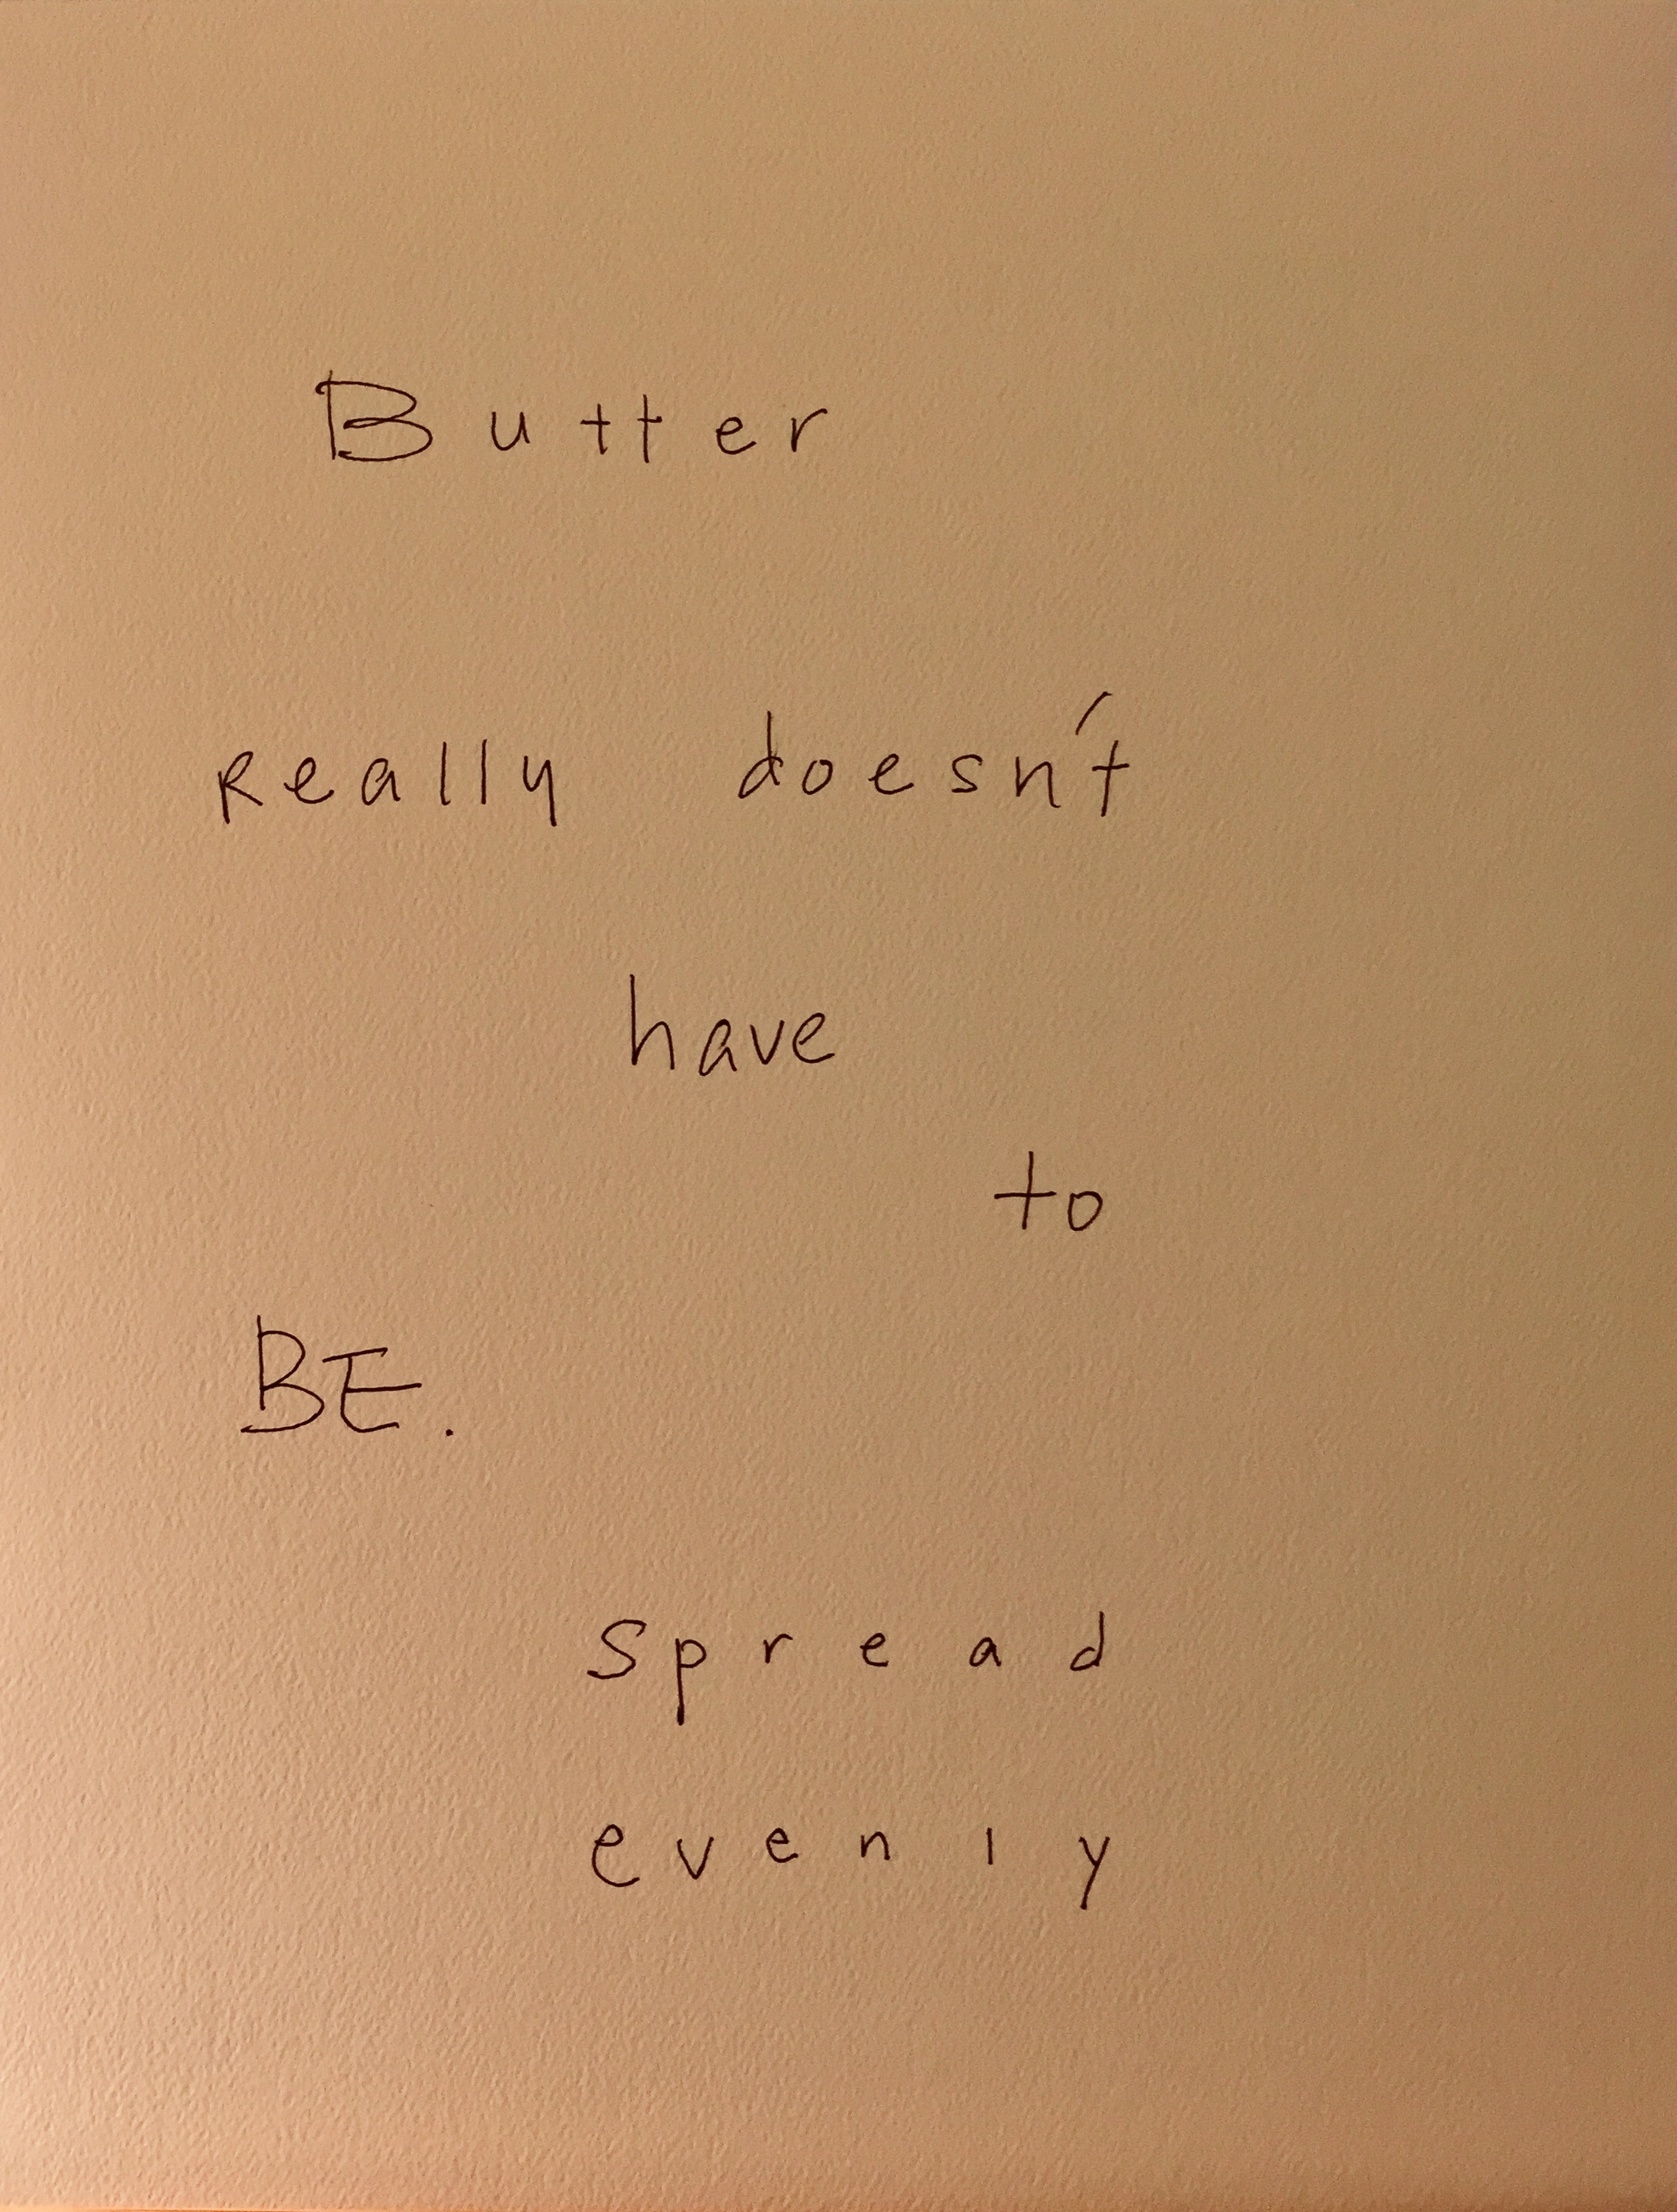 Butter
Really doesn't
have
to
BE.
spread
evenly